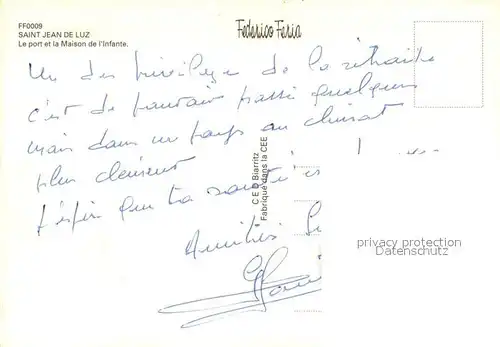 FF0009
SAINT JEAN DE LUZ
Le port et la Maison de l'Infante.
Federico Feria
Un des privilège de la retraite
c'est de pouvoir passé quelques
mois dans un pays au climat
plus clément
J'espère que ta santé
Amitiés
C E D Biarritz
Fabrique dans la CEE
privacy protection
Datenschutz